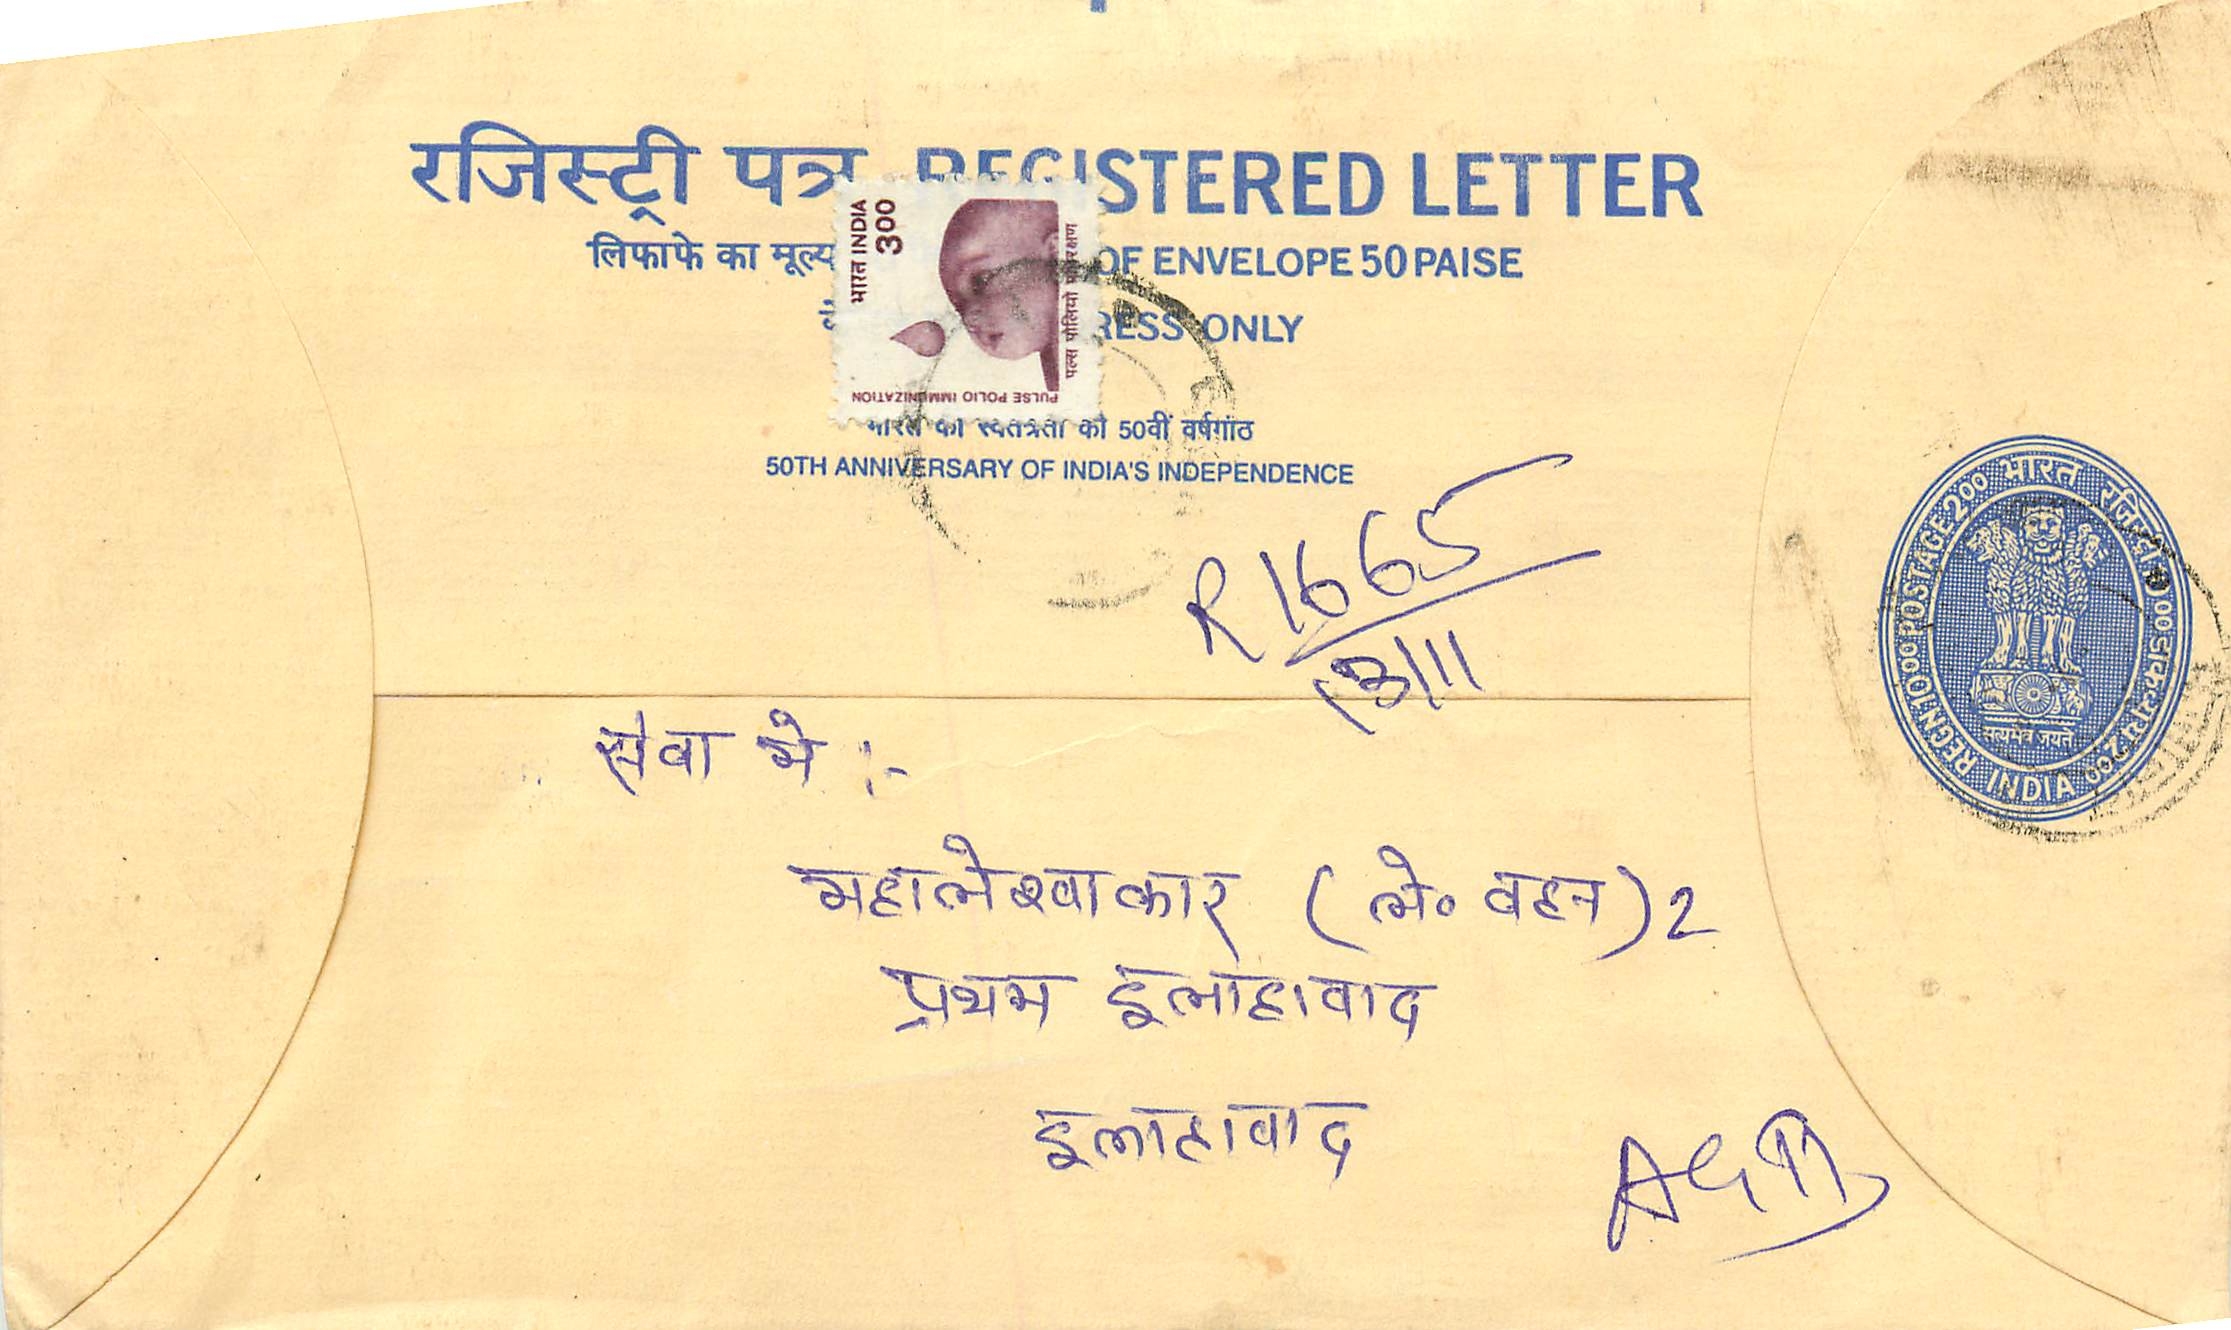 रजिस्ट्री पत्र REGISTERED LETTER
लिफाफे का मूल्य OF ENVELOPE 50 PAISE
ONLY
भारत INDIA
300
पल्स पोलियो प्रतिरक्षण
PULSE POLIO IMMUNIZATION
भारत की स्वतंत्रता की 50वीं वर्षगांठ
50TH ANNIVERSARY OF INDIA'S INDEPENDENCE
R 1665
13/11
भारत रजिस्ट्री 1000 डाक टिकट 200
INDIA REGN 1000 POSTAGE 200
सत्यमेव जयते
सेवा मे :-
(ले० वहन) 2
प्रथम इलाहावाद
इलाहावाद